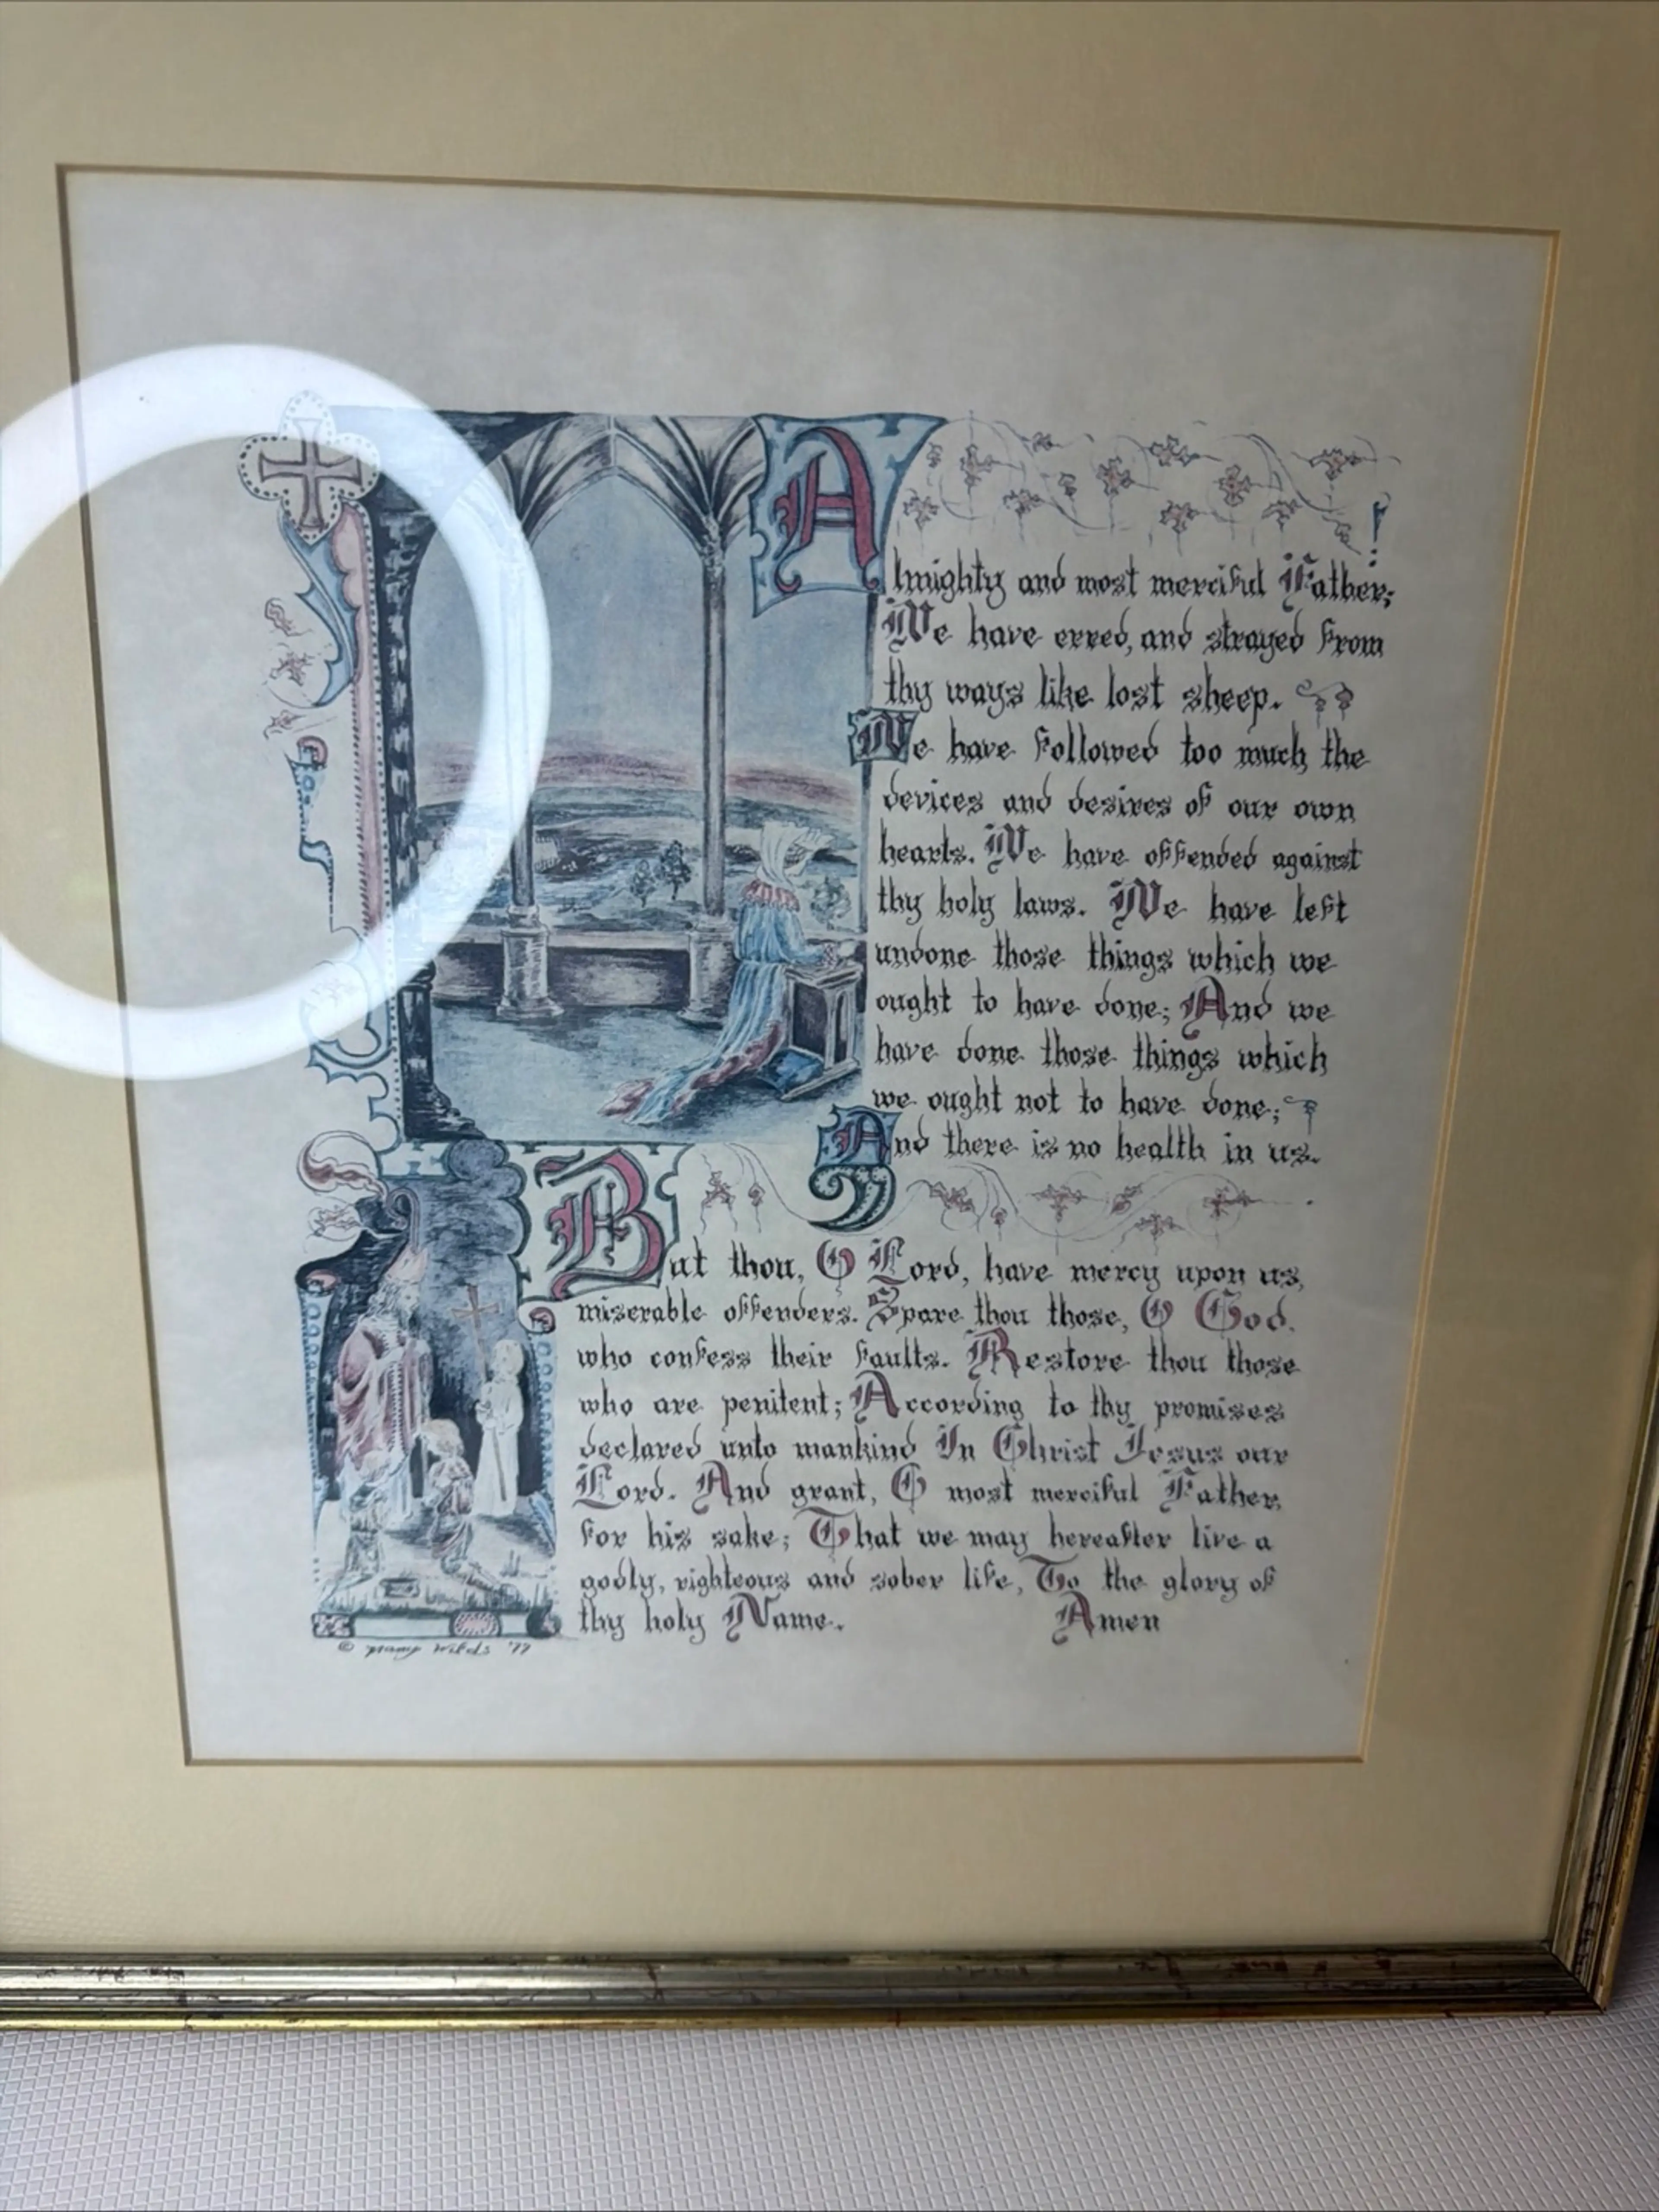 Almighty and most merciful Father;
We have erred, and strayed from
thy ways like lost sheep.
We have followed too much the
devices and desires of our own
hearts. We have offended against
thy holy laws. We have left
undone those things which we
ought to have done; And we
have done those things which
we ought not to have done;
And there is no health in us.
But thou, O Lord, have mercy upon us,
miserable offenders. Spare thou those, O God,
who confess their faults. Restore thou those
who are penitent; According to thy promises
declared unto mankind In Christ Jesus our
Lord. And grant, O most merciful Father,
for his sake; That we may hereafter live a
godly, righteous and sober life, To the glory of
thy holy Name. Amen
© '77